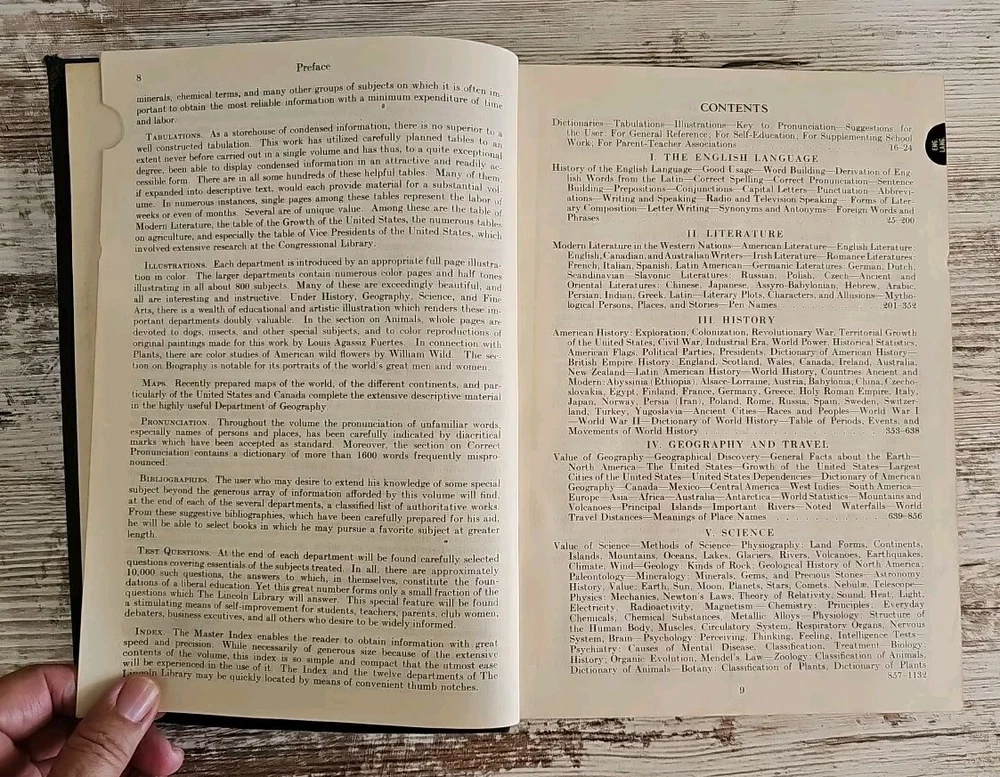 8
Preface
minerals, chemical terms, and many other groups of subjects on which it is often im-
portant to obtain the most reliable information with a minimum expenditure of time
and labor.
TABULATIONS. As a storehouse of condensed information, there is no superior to a
well constructed tabulation. This work has utilized carefully planned tables to an
extent never before carried out in a single volume and has thus, to a quite exceptional
degree, been able to display condensed information in an attractive and readily ac-
cessible form. There are in all some hundreds of these helpful tables. Many of them,
if expanded into descriptive text, would each provide material for a substantial vol-
ume. In numerous instances, single pages among these tables represent the labor of
weeks or even of months. Several are of unique value. Among these are the table of
Modern Literature, the table of the Growth of the United States, the numerous tables
on agriculture, and especially the table of Vice Presidents of the United States, which
involved extensive research at the Congressional Library.
ILLUSTRATIONS. Each department is introduced by an appropriate full page illustra-
tion in color. The larger departments contain numerous color pages and half tones
illustrating in all about 800 subjects. Many of these are exceedingly beautiful, and
all are interesting and instructive. Under History, Geography, Science, and Fine
Arts, there is a wealth of educational and artistic illustration which renders these im-
portant departments doubly valuable. In the section on Animals, whole pages are
devoted to dogs, insects, and other special subjects, and to color reproductions of
original paintings made for this work by Louis Agassiz Fuertes. In connection with
Plants, there are color studies of American wild flowers by William Wild. The sec-
tion on Biography is notable for its portraits of the world's great men and women.
MAPS. Recently prepared maps of the world, of the different continents, and par-
ticularly of the United States and Canada complete the extensive descriptive material
in the highly useful Department of Geography.
PRONUNCIATION. Throughout the volume the pronunciation of unfamiliar words,
especially names of persons and places, has been carefully indicated by diacritical
marks which have been accepted as standard. Moreover, the section on Correct
Pronunciation contains a dictionary of more than 1600 words frequently mispro-
nounced.
BIBLIOGRAPHIES. The user who may desire to extend his knowledge of some special
subject beyond the generous array of information afforded by this volume will find,
at the end of each of the several departments, a classified list of authoritative works.
From these suggestive bibliographies, which have been carefully prepared for his aid,
he will be able to select books in which he may pursue a favorite subject at greater
length.
TEST QUESTIONS. At the end of each department will be found carefully selected
questions covering essentials of the subjects treated. In all, there are approximately
10,000 such questions, the answers to which, in themselves, constitute the foun-
dations of a liberal education. Yet this great number forms only a small fraction of the
questions which The Lincoln Library will answer. This special feature will be found
a stimulating means of self-improvement for students, teachers, parents, club women,
debaters, business excutives, and all others who desire to be widely informed.
INDEX. The Master Index enables the reader to obtain information with great
speed and precision. While necessarily of generous size because of the extensive
contents of the volume, this index is so simple and compact that the utmost ease
will be experienced in the use of it. The Index and the twelve departments of The
Lincoln Library may be quickly located by means of convenient thumb notches.
CONTENTS
Dictionaries—Tabulations—Illustrations—Key to Pronunciation—Suggestions for
the User, For General Reference, For Self-Education, For Supplementing School
Work, For Parent-Teacher Associations 16-24
I. THE ENGLISH LANGUAGE
History of the English Language—Good Usage—Word Building—Derivation of Eng-
lish Words from the Latin—Correct Spelling—Correct Pronunciation—Sentence
Building—Prepositions—Conjunctions—Capital Letters—Punctuation—Abbrevi-
ations—Writing and Speaking—Radio and Television Speaking—Forms of Liter-
ary Composition—Letter Writing—Synonyms and Antonyms—Foreign Words and
Phrases 25-200
II. LITERATURE
Modern Literature in the Western Nations—American Literature—English Literature:
English, Canadian, and Australian Writers—Irish Literature—Romance Literatures:
French, Italian, Spanish, Latin American—Germanic Literatures: German, Dutch,
Scandinavian—Slavonic Literatures: Russian, Polish, Czech—Ancient and
Oriental Literatures: Chinese, Japanese, Assyro-Babylonian, Hebrew, Arabic,
Persian, Indian, Greek, Latin—Literary Plots, Characters, and Allusions—Mytho-
logical Persons, Places, and Stories—Pen Names 201-352
III. HISTORY
American History: Exploration, Colonization, Revolutionary War, Territorial Growth
of the United States, Civil War, Industrial Era, World Power, Historical Statistics,
American Flags, Political Parties, Presidents, Dictionary of American History—
British Empire History: England, Scotland, Wales, Canada, Ireland, Australia,
New Zealand—Latin American History—World History, Countries Ancient and
Modern: Abyssinia (Ethiopia), Alsace-Lorraine, Austria, Babylonia, China, Czecho-
slovakia, Egypt, Finland, France, Germany, Greece, Holy Roman Empire, Italy,
Japan, Norway, Persia (Iran), Poland, Rome, Russia, Spain, Sweden, Switzer-
land, Turkey, Yugoslavia—Ancient Cities—Races and Peoples—World War I
—World War II—Dictionary of World History—Table of Periods, Events, and
Movements of World History 353-638
IV. GEOGRAPHY AND TRAVEL
Value of Geography—Geographical Discovery—General Facts about the Earth—
North America—The United States—Growth of the United States—Largest
Cities of the United States—United States Dependencies—Dictionary of American
Geography—Canada—Mexico—Central America—West Indies—South America—
Europe—Asia—Africa—Australia—Antarctica—World Statistics—Mountains and
Volcanoes—Principal Islands—Important Rivers—Noted Waterfalls—World
Travel Distances—Meanings of Place Names 639-856
V. SCIENCE
Value of Science—Methods of Science—Physiography: Land Forms, Continents,
Islands, Mountains, Oceans, Lakes, Glaciers, Rivers, Volcanoes, Earthquakes,
Climate, Wind—Geology: Kinds of Rock; Geological History of North America;
Paleontology—Mineralogy: Minerals, Gems, and Precious Stones—Astronomy:
History, Value, Earth, Sun, Moon, Planets, Stars, Comets, Nebulæ, Telescope—
Physics: Mechanics, Newton's Laws, Theory of Relativity, Sound, Heat, Light,
Electricity, Radioactivity, Magnetism—Chemistry: Principles, Everyday
Chemicals, Chemical Substances, Metallic Alloys—Physiology: Structure of
the Human Body, Muscles, Circulatory System, Respiratory Organs, Nervous
System, Brain—Psychology: Perceiving, Thinking, Feeling, Intelligence Tests—
Psychiatry: Causes of Mental Disease, Classification, Treatment—Biology:
History, Organic Evolution, Mendel's Law—Zoology: Classification of Animals,
Dictionary of Animals—Botany: Classification of Plants, Dictionary of Plants
857-1132
9
ENG
LANG